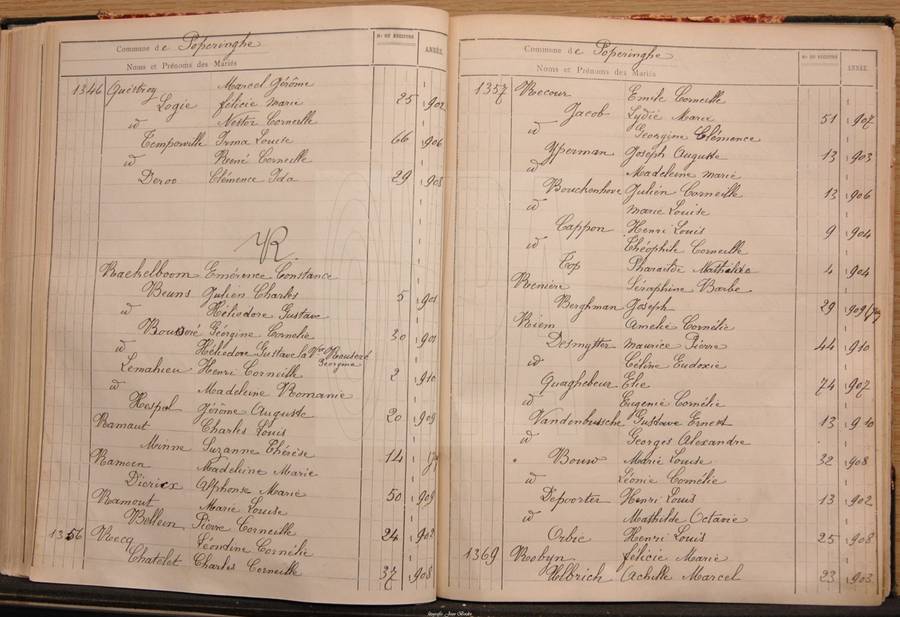 Commune de Poperinghe
Noms et Prénoms des Mariés
No DU REGISTRE
ANNÉE.
1346 Marcel Jérôme
Logie félicie Marie 25 902
id Nestor Corneille
Irma Louise 66 906
id René Corneille
Deroo Clémence Ida 29 908
R.
Rachelboom Emérence Constance
Beuns Julien Charles 5 901
id Héliodore Gustave
Bouderé Géorgine Cornelie 30 901
id Héliodore Gustave la Vve
Géorgine
Lemahieu Henri Corneille 2 910
id Madeleine Romanie
Hespel Jérôme Auguste 20 909
Ramaut Charles Louis
Minne Suzanne Thérèse 14
Madeleine Marie
Diericx Alphonse Marie 50 909
Ramout Marie Louise
Bellein Pierre Corneille 24 902
1356 Recq Léondine Cornélie
Chatelet Charles Corneille 37 908
Commune de Poperinghe
Noms et Prénoms des Mariés
No DU REGISTRE
ANNÉE.
1357 Recour Emile Corneille
Jacob Lydie Marie 51 907
id Georgine Clémence
Yperman Joseph Auguste 13 903
id Madeleine Marie
Bouchenhove Julien Corneille 13 906
id Marie Louise
Cappon Henri Louis 9 904
id Théophile Corneille
Top Pharaïlde Mathilde 4 904
Renière Séraphine Barbe
Berghman Joseph 29 909
Riem Amelie Cornélie
Desmytter Maurice Pierre 44 910
id Céline Eudoxie
Quaghebeur Elie 74 907
id Eugenie Cornélie
Vandenbussche Gustave Ernest 13 910
id Georges Alexandre
Bouw Marie Louise 32 908
id Léonie Cornélie
Depoorter Henri Louis 13 902
id Mathilde Octavie
Orbie Henri Louis 25 908
1369 Robyn félicie Marie
Ulbrich Achille Marcel 23 903